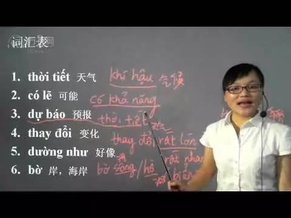 词汇表
1. thời tiết 天气 khí hậu 气候
2. có lẽ 可能 có khả năng
3. dự báo 预报
4. thay đổi 变化 thay đổi rất lớn
5. dường như 好像 rất nhanh
6. bờ 岸，海岸 bờ sông/hồ biển